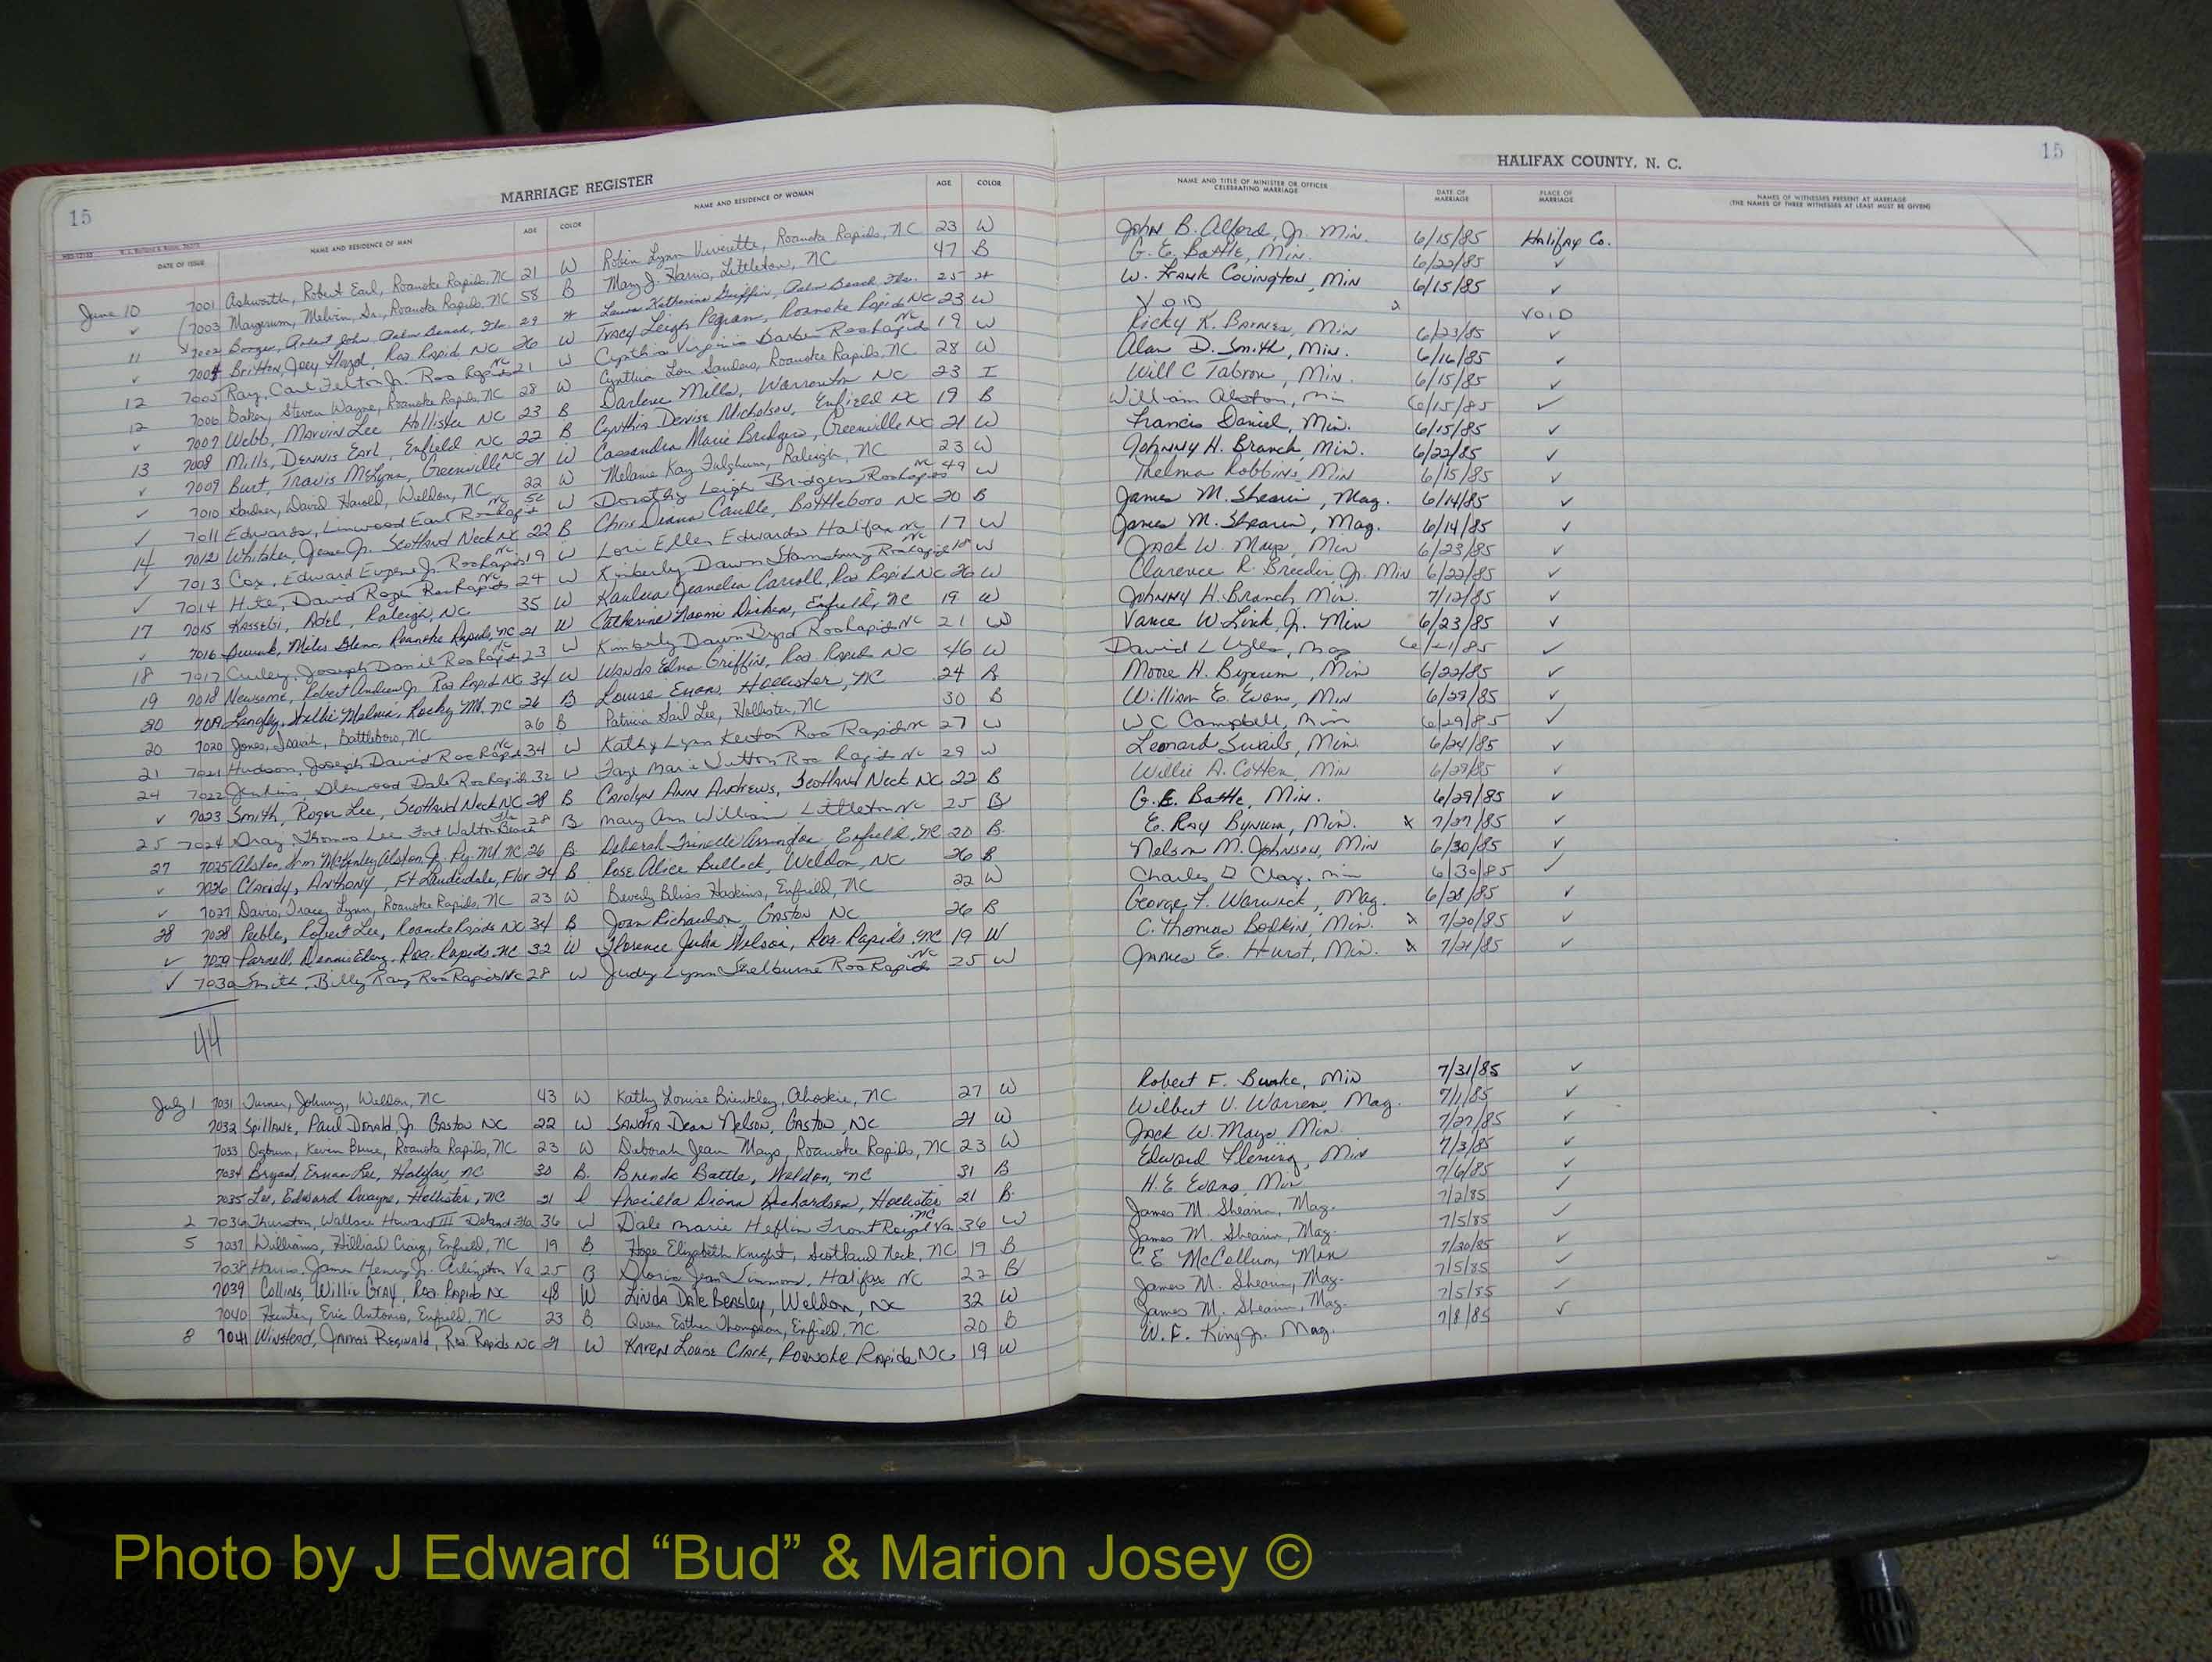 15
MARRIAGE REGISTER
HALIFAX COUNTY, N. C.
15
DATE OF ISSUE NAME AND RESIDENCE OF MAN AGE COLOR NAME AND RESIDENCE OF WOMAN AGE COLOR NAME AND TITLE OF MINISTER OR OFFICER CELEBRATING MARRIAGE DATE OF MARRIAGE PLACE OF MARRIAGE NAMES OF WITNESSES PRESENT AT MARRIAGE (THE NAMES OF THREE WITNESSES AT LEAST MUST BE GIVEN)
June 10 7001 Ashworth, Robert Earl, Roanoke Rapids, NC 21 W Robin Lynn Viverette, Roanoke Rapids, NC 23 W John B. Alford, Jr. Min. 6/15/85 Halifax Co.
✓ 7003 Mangrum, Melvin, Sr., Roanoke Rapids, NC 58 B Mary J. Harris, Littleton, NC 47 B G. E. Battle, Min. 6/22/85 ✓
7002 John Palm Beach, Fla. 29 Katherine Griffin, Palm Beach, Fla. 25 W. Frank Covington, Min 6/15/85 ✓
11 7004 Britton, Joey Floyd, Roa Rapid NC 26 W Tracy Leigh Pegram, Roanoke Rapids NC 23 W VOID VOID
✓ 7005 Ray, Carl Felton Jr. Roa Rapids NC 21 W Cynthia Virginia Barber Roa Rapids NC 19 W Ricky K. Barnes, Min 6/23/85 ✓
12 7006 Baker, Steven Wayne, Roanoke Rapids, NC 28 W Cynthia Lou Sanders, Roanoke Rapids, NC 28 W Alan D. Smith, Min. 6/16/85 ✓
12 7007 Webb, Marvin Lee Hollister NC 23 B Darlene Mills, Warrenton NC 23 I Will C Tabron, Min. 6/15/85 ✓
✓ 7008 Mills, Dennis Earl, Enfield NC 22 B Cynthia Denise Nicholson, Enfield NC 19 B William Alston, Min 6/15/85 ✓
13 7009 Burt, Travis McGlynn, Greenville NC 21 W Cassandra Marie Bridgers, Greenville NC 21 W Francis Daniel, Min. 6/15/85 ✓
✓ 7010 David Harold, Weldon, NC 22 W Melanie Kay Fulghum, Raleigh, NC 23 W Johnny H. Branch, Min. 6/22/85 ✓
✓ 7011 Edwards, Linwood Earl Roa Rapids NC 52 W Dorothy Leigh Bridgers Roa Rapids NC 49 W Thelma Robbins Min 6/15/85 ✓
✓ 7012 Whitaker, Jesse Jr. Scotland Neck NC 22 B Chris Diana Caudle, Battleboro NC 20 B James M. Shearin, Mag. 6/14/85 ✓
14 7013 Cox, Edward Eugene Jr. Roa Rapids NC 19 W Lori Ellen Edwards Halifax NC 17 W James M. Shearin, Mag. 6/14/85 ✓
✓ 7014 Hite, David Roger Roa Rapids NC 24 W Kimberly Dawn Stansbury Roa Rapids NC 18 W Jack W. Mays, Min 6/23/85 ✓
✓ 7015 Kassebi, Adel, Raleigh, NC 35 W Jeanelia Carroll, Roa Rapids NC 26 W Clarence R. Breedin, Jr. Min 6/22/85 ✓
17 7016 Miles Glenn, Roanoke Rapids, NC 21 W Catherine Naomi Dickens, Enfield, NC 19 W Johnny H. Branch Min. 7/12/85 ✓
✓ 7017 Curley, Joseph Daniel Roa Rapids NC 23 W Kimberly Dawn Byrd Roa Rapids NC 21 W Vance W. Link, Jr. Min 6/23/85 ✓
18 7018 Newsome, Robert Andrew Jr. Roa Rapids NC 34 W Wanda Edna Griffin, Roa Rapid NC 46 W David L Lyles, Mag 6/21/85 ✓
19 7019 Langley, Melvin, Rocky Mt. NC 26 B Louise Evans, Hollister, NC 24 B Moore H. Bynum, Min 6/22/85 ✓
20 7020 Jones, Isaiah, Battleboro, NC 26 B Patricia Gail Lee, Hollister, NC 30 B William E. Evans, Min 6/29/85 ✓
20 7021 Hudson, Joseph David Roa Rapids NC 34 W Kathy Lynn Keeton Roa Rapids NC 27 W W C Campbell, Min 6/29/85 ✓
21 7022 Jenkins, Glenwood Dale Roa Rapids 32 W Faye Marie Vutton Roa Rapids NC 29 W Leonard Swails, Min. 6/24/85 ✓
24 7023 Smith, Roger Lee, Scotland Neck NC 28 B Carolyn Ann Andrews, Scotland Neck NC 22 B Willie A. Cotten, Min 6/29/85 ✓
✓ 7024 Gray, Thomas Lee Fort Walton Beach Fla 28 B Mary Ann William Littleton NC 25 B G. E. Battle, Min. 6/29/85 ✓
25 7025 Alston, Wm McKinley Alston, Jr. Rg. Mt NC 26 B Deborah Trinette Arrington Enfield, NC 20 B E. Ray Bynum, Min. x 7/27/85 ✓
27 7026 Clardy, Anthony, Ft Lauderdale, Flor 24 B Rose Alice Bullock, Weldon, NC 26 B Nelson M. Johnson, Min 6/30/85 ✓
✓ 7027 Davis, Tracy Lynn, Roanoke Rapids, NC 23 W Beverly Bliss Haskins, Enfield, NC 22 W Charles D Clay, Min 6/30/85 ✓
✓ 7028 Peebles, Robert Lee, Roanoke Rapids NC 34 B Joan Richardson, Gaston NC 26 B George F. Warwick, Mag. 6/28/85 ✓
28 7029 Parnell, Dennis Roa. Rapids, NC 32 W Florence Julia Wilson, Roa. Rapids, NC 19 W C. Thomas Bodkin, Min. x 7/20/85 ✓
✓ 7030 Smith, Billy Ray Roa Rapids NC 28 W Judy Lynn Shelburne Roa Rapids NC 25 W James E. Hurst, Min. x 7/21/85 ✓
44
July 1 7031 Turner, Johnny, Weldon, NC 43 W Kathy Louise Brinkley, Ahoskie, NC 27 W Robert F. Burke, Min 7/31/85 ✓
7032 Spillane, Paul Donald, Jr. Gaston NC 22 W Sandra Dean Nelson, Gaston, NC 21 W Wilbert V. Warren, Mag. 7/1/85 ✓
7033 Ogburn, Kevin Bruce, Roanoke Rapids, NC 23 W Deborah Jean Mays, Roanoke Rapids, NC 23 W Jack W. Mays Min. 7/27/85 ✓
7034 Bryant, Ernest Lee, Halifax, NC 30 B. Brenda Battle, Weldon, NC 31 B Edward Fleming, Min 7/3/85 ✓
7035 Lee, Edward Dwayne, Hollister, NC 21 I Priscilla Diana Richardson, Hollister NC 21 B. H. E. Evans, Min 7/6/85 ✓
2 7036 Thurston, Wallace Howard III Deland Fla 36 W Dale Marie Heflin Front Royal Va 36 W James M. Shearin, Mag. 7/2/85 ✓
5 7037 Williams, Hilliard Craig, Enfield, NC 19 B Hope Elizabeth Knight, Scotland Neck, NC 19 B James M. Shearin, Mag. 7/5/85 ✓
7038 Harris, James Henry Jr. Arlington Va 25 B Gloria Jean Simmons, Halifax NC 22 B C E McCollum, Min 7/20/85 ✓
7039 Collins, Willie Gray, Roa. Rapids NC 48 W Linda Dale Beasley, Weldon, NC 32 W James M. Shearin, Mag. 7/5/85 ✓
7040 Hunter, Eric Antonio, Enfield, NC 23 B Gwen Esther Thompson, Enfield, NC 20 B James M. Shearin, Mag. 7/5/85 ✓
8 7041 Winstead, James Reginald, Roa. Rapids NC 21 W Karen Louise Clark, Roanoke Rapids NC 19 W W. F. King Jr. Mag. 7/8/85 ✓
Photo by J Edward “Bud” & Marion Josey ©